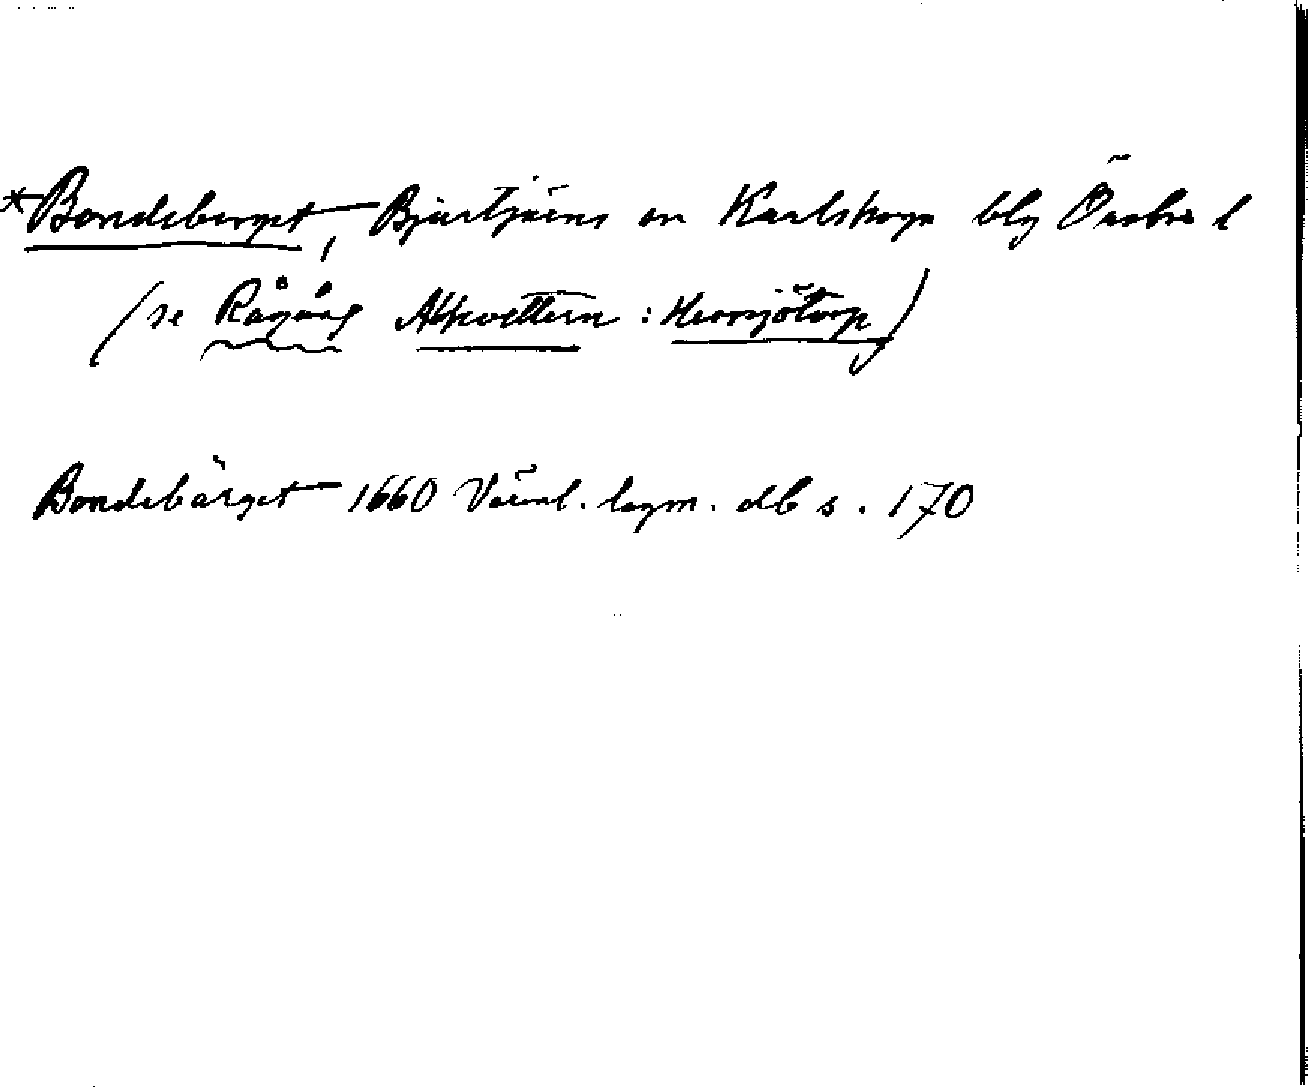 *Bondeberget, Bjurtjärns sn Karlskoga blg Örebro l
(se Rågång Alkvettern : Herrsjötorp)
Bondebärget 1660 Värml. lagm. db s. 170